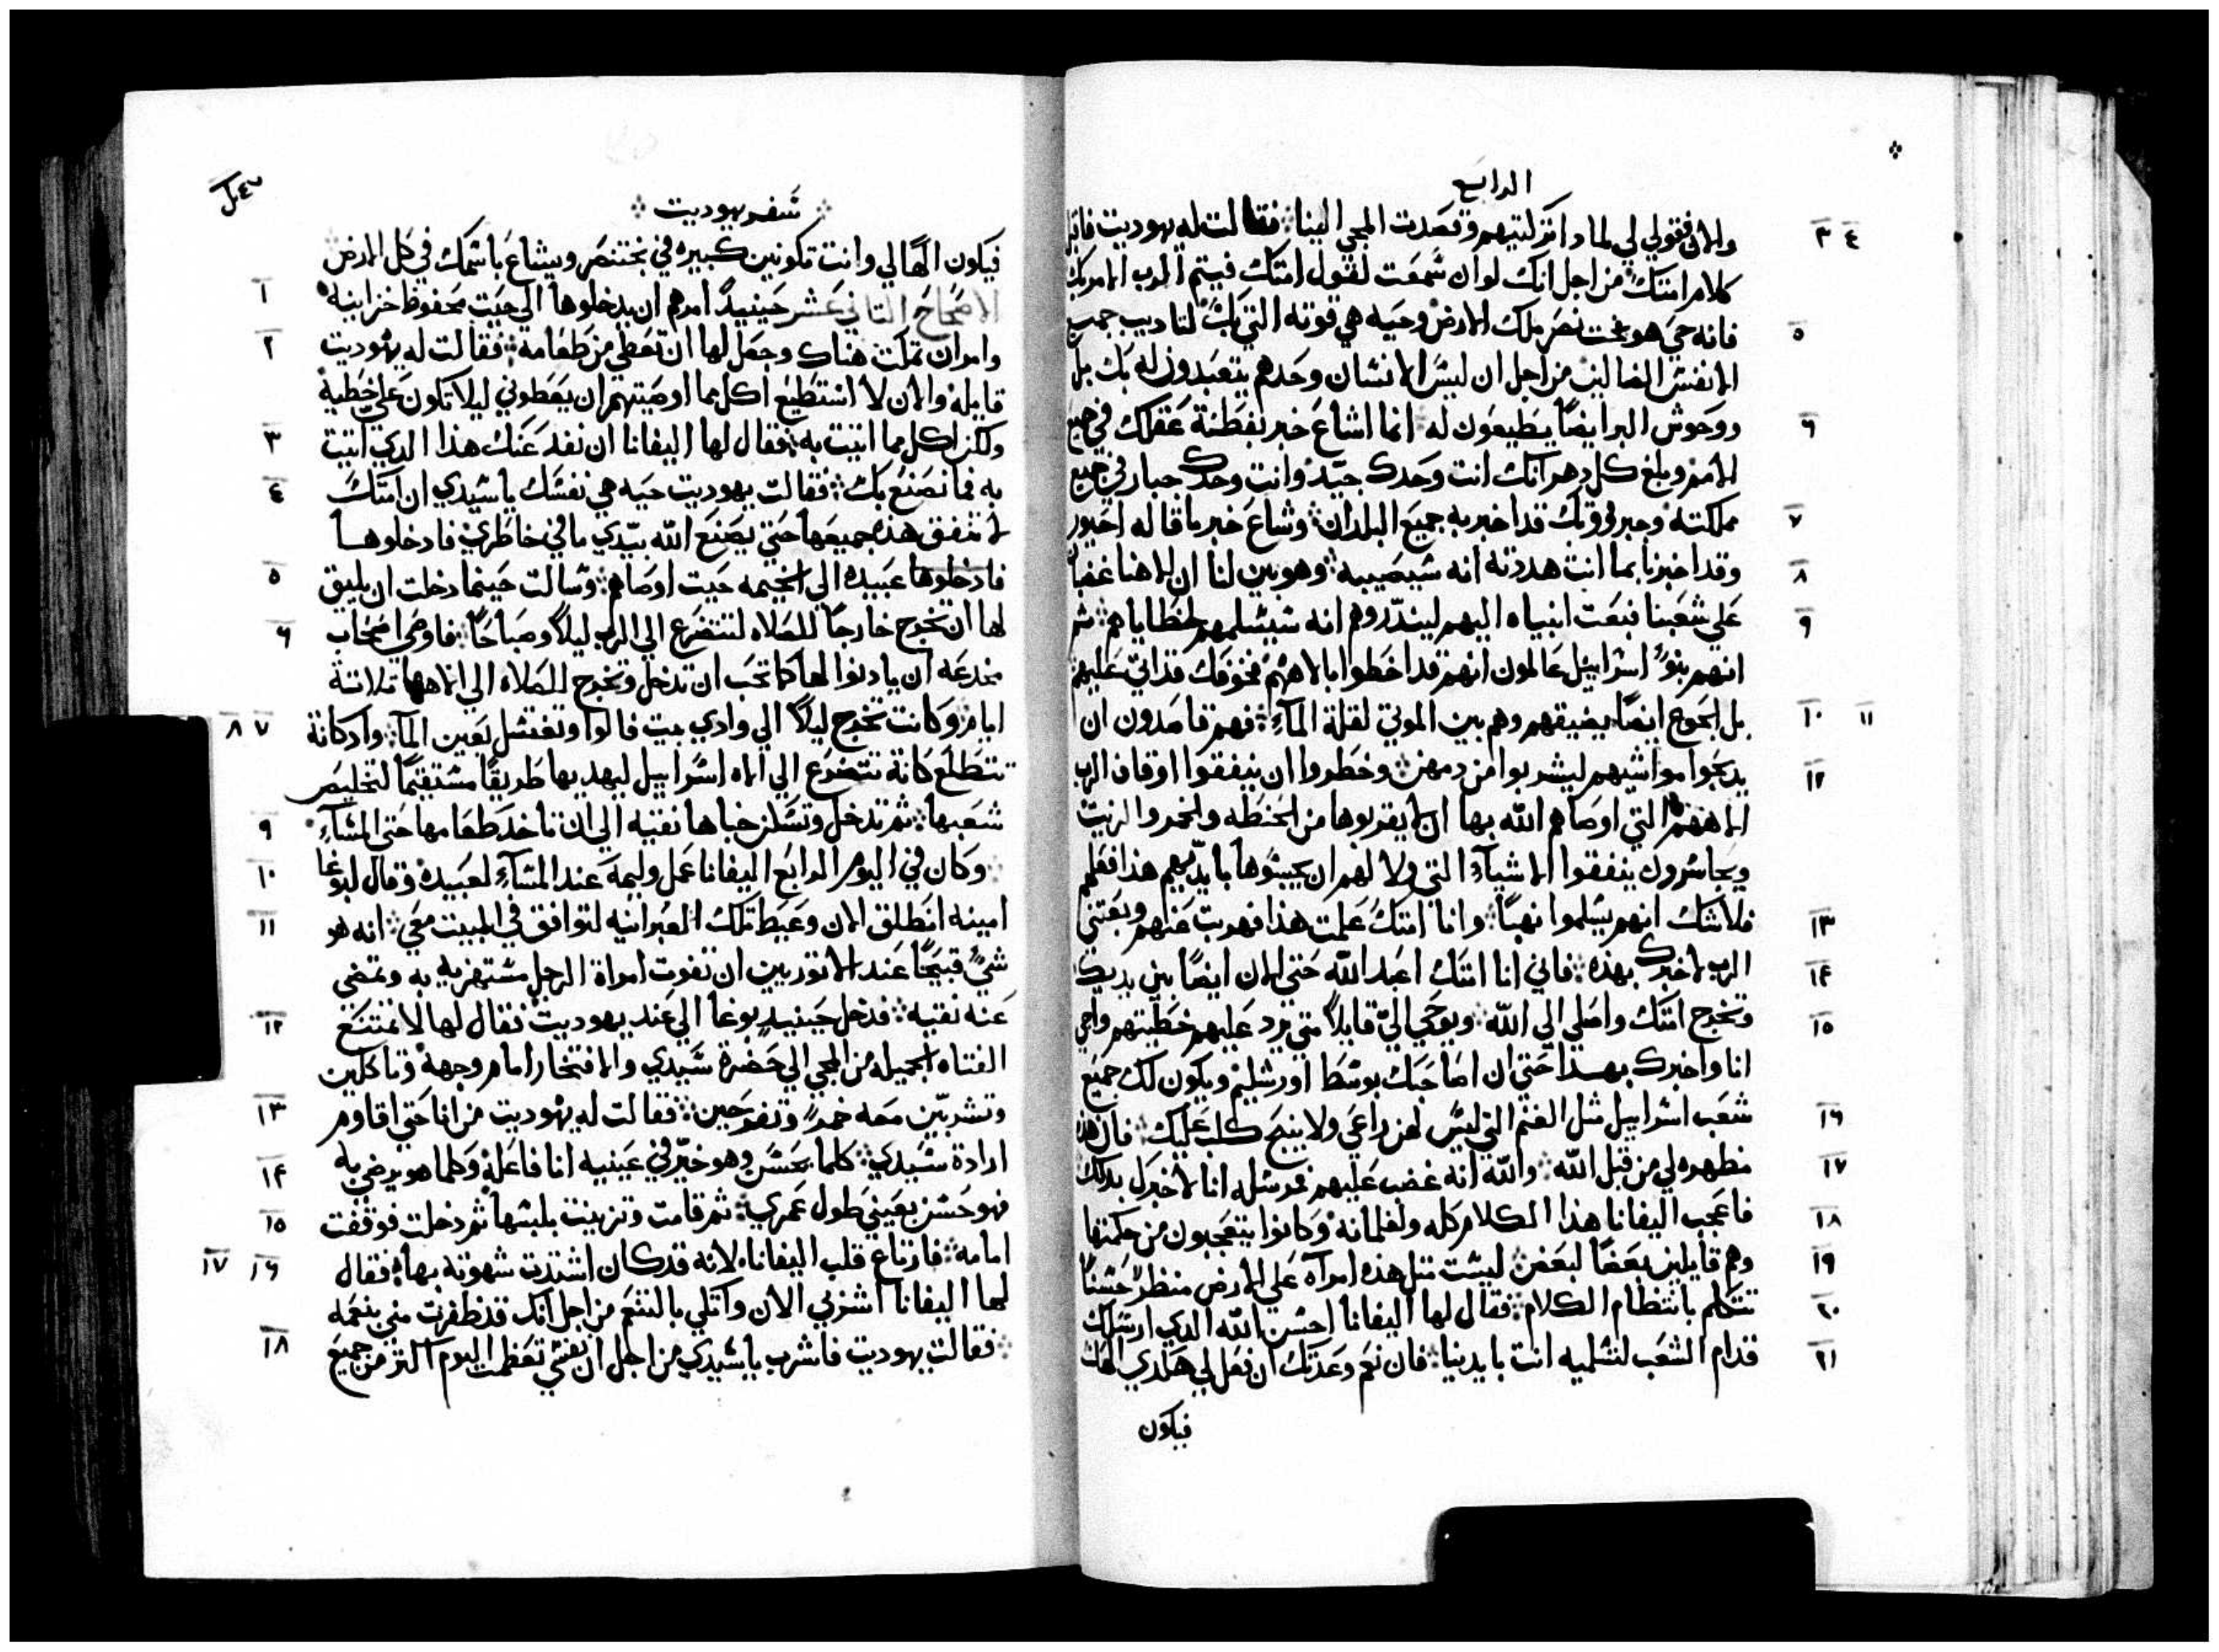 الرابع
والان فقولي لي لمادا تركتيهم وقصدت المجي الينا فقالت له يهوديت فاقبل ٣ ٤
كلام امتك من اجل انك لو ان سمعت لقول امتك فيتم الرب الامر بك
فانه حي هو بخت نصر ملك الارض وحيه هي قوته التي بك لتاديب جميع ٥
الانفس الضالين من اجل ان ليس الانسان وحدهم يتعبدون له بك بل
ووحوش البر ايضًا يطيعون له انما اشاع خبر بفطنة عقلك في جميع ٦
الامم وبلغ كل دهر انك انت وحدك جيد وانت وحدك جبار في جميع
مملكته وجبروتك قد اخبر به جميع البلدان وشاع خبر ما قاله احيور ٧
وقد اخبرنا بما انت هددته انه سيصيبه وهو بين لنا ان الاهنا غضبان ٨
علي شعبنا فبعت انبياه اليهم ليندروهم انه سيسلمهم لخطاياهم ثم ٩
انهم بنو اسراييل عالمون انهم قد اخطوا بالاههم فخوفك قد اتي عليهم
بل الجوع ايضًا يضيقهم وهم بين الموتي لقلة المآء فهم قاصدون ان ١٠ ١١
يدبحوا مواشيهم ليشربوا من دمهن وخطروا ان ينفقوا اوقاف الرب ١٢
الاههم التي اوصاهم الله بها ان لا يقربوها من الحنطه والخمر والزيت
ويجاسرون ينفقوا الاشيآء التي ولا لهم ان يجسوها بايديهم هذا فعلهم
فلا شك انهم يسلموا نهبًا وانا امتك علمت هذا فهربت عنهم وبعتني ١٣
الرب لاخبرك بهذه فاني انا امتك اعبد الله حتي الان ايضًا بين يديك ١٤
وتخرج امتك واصلي الي الله ويوحي اليّ قايلاً متي يرد عليهم خطيتهم واجي ١٥
انا واخبرك بهدا حتي ان اصاحبك بوسط اورشليم ويكون لك جميع
شعب اسراييل مثل الغنم التي ليس لهن راعي ولا ينبح كلب عليك فان هذه ١٦
مظهره لي من قبل الله والله انه غضب عليهم فمرسله انا لاخبرك بدلك ١٧
فاعجب اليفانا هذا الكلام كله ولغلمانه وكانوا يتعجبون من حكمتها ١٨
وهم قايلين بعضًا لبعض ليست متل هذه امرآه علي الارض منظرً حسنًا ١٩
تتكلم بانتظام الكلام فقال لها اليفانا احسن الله الدي ارسلك ٢٠
قدام الشعب لتسلميه انت بايدينا فان نعم وعدتك ان فعل لي هكدي الهك ٢١
فيكون
سفر يهوديت
فيكون الهًا لي وانت تكونين كبيره في بختنصر ويشاع باسمك في كل الارض
الاصحاح التاني عشر حينيدً امرهم ان يدخلوها الي حيت محفوظ خزاينه ١
وامر ان تمكت هناك وجعل لها ان تعطي من طعامه فقالت له يهوديت ٢
قايله والان لا استطيع اكل مما اوصيتهم ان يعطوني ليلا تكون عليّ خطية
ولكن اكل مما اتيت به فقال لها اليفانا ان نفد عنك هذا الدي اتيت ٣
به فما نصنع بك فقالت يهوديت حيه هي نفسك يا سيدي ان امتك ٤
لا تنفق هذه جميعها حتي يصنع الله بيدي ما في خاطري فادخلوها
فادخلوها عبيده الي الخيمه حيت اوصاهم وسالت حينما دخلت ان يليق ٥
لها ان تخرج خارجًا للصلاه لتتضرع الي الرب ليلاً وصباحًا فاوصي اصحاب ٦
مخدعه ان يادنوا لها كما تحب ان تدخل وتخرج للصلاه الي الاهها تلاتة
ايام وكانت تخرج ليلاً الي وادي بيت فالوا وتغتسل بعين المآ وادكانة ٧ ٨
تتطلع كانة تتضرع الي الاه اسراييل ليهديها طريقًا مستقيمًا لتخليص
شعبها ثم تدخل وتسكن خباها نقيه الي ان تاخد طعامها حتي المسآء ٩
وكان في اليوم الرابع اليفانا عمل وليمة عند المسآء لعبيده وقال لبوغا ١٠
امينه انطلق الان وعبط تلك العبرانيه لتوافق في المبيت معي انه هو ١١
شيً قبيحًا عند الاتوريين ان تفوت امراة الرجل مستهزيه به وتمضي
عنه نقيه فدخل حينيدٍ بوغا الي عند يهوديت فقال لها لا تمتنع ١٢
الفتاه الجميله من المجي الي حضرة سيدي والافتخار امام وجهه وتاكلين
وتشربين معه خمرً وتفرحين فقالت له يهوديت من انا حتي اقاوم ١٣
ارادة سيدي كلما يحسن وهو خيّر في عينيه انا فاعله وكلما هو يرضي به ١٤
فهو حسن بعيني طول عمري ثم قامت وتزينت بلبسها ثم دخلت فوقفت ١٥
امامه فارتاع قلب اليفانا لانه قد كان اشتدت شهوته بها فقال ١٦ ١٧
لها اليفانا اشربي الان واتكلي بالتنعم من اجل انك قد ظفرت مني بنعمه
فقالت يهوديت فاشرب يا سيدي من اجل ان نفسي تعظمت اليوم اكتر من جميع ١٨